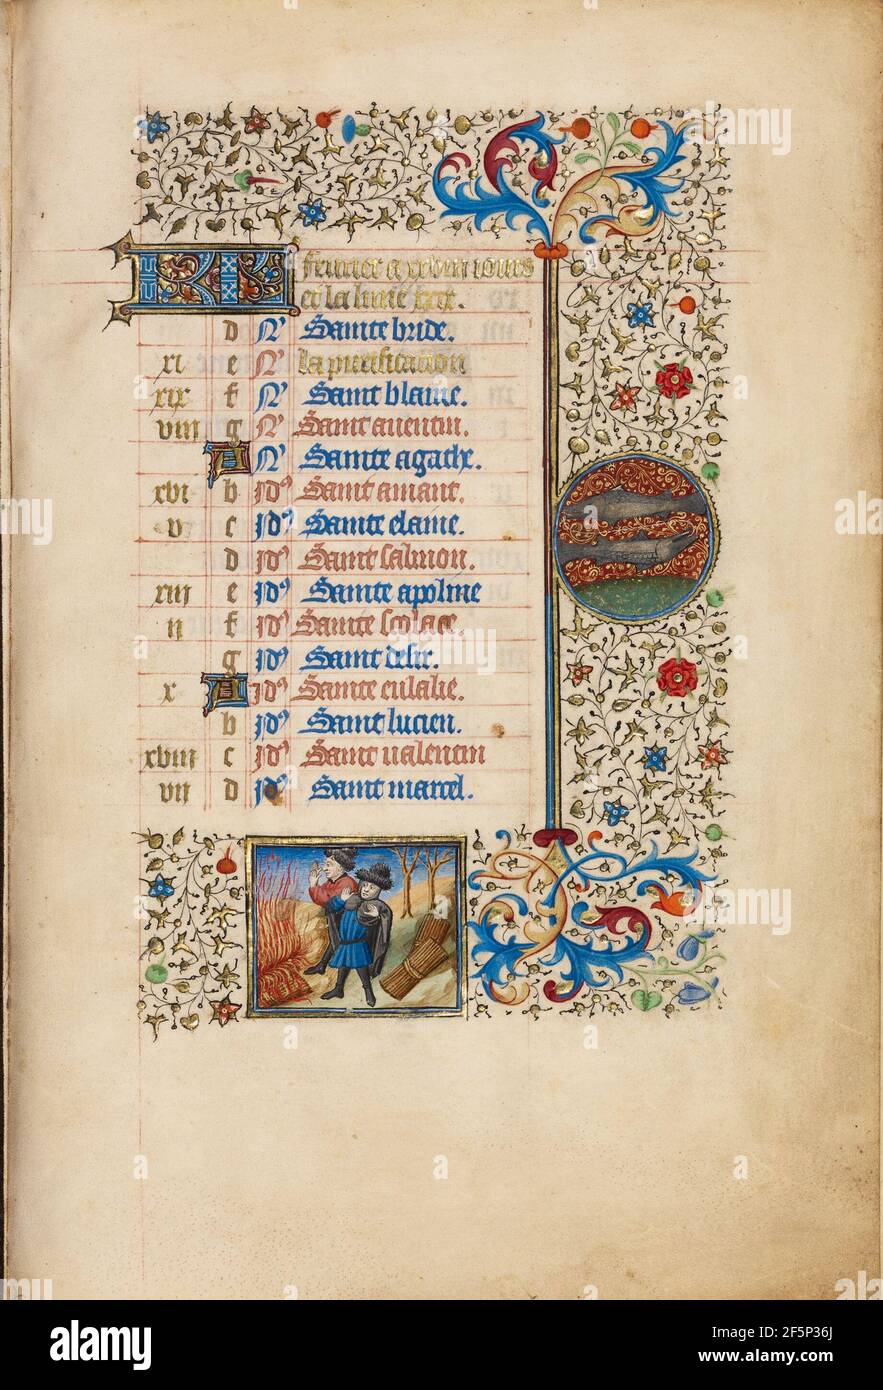 KL feurier a xxviii iours
et la lune xxix.
d N' Sainte bride.
xi e N' la purification
xix f N' Saint blaise.
viii g N' Saint auentin.
A N' Sainte agathe.
xvi b Id' Saint amant.
v c Id' Sainte elaine.
d Id' Saint salmon.
xiii e Id' Sainte apoline
ii f Id' Sainte scolace.
g Id' Saint desir.
x A Id' Sainte eulalie.
b Id' Saint lucien.
xviii c Id' Saint ualentin
vii d Saint marcel.
alamy
Image ID: 2F5P36J
www.alamy.com